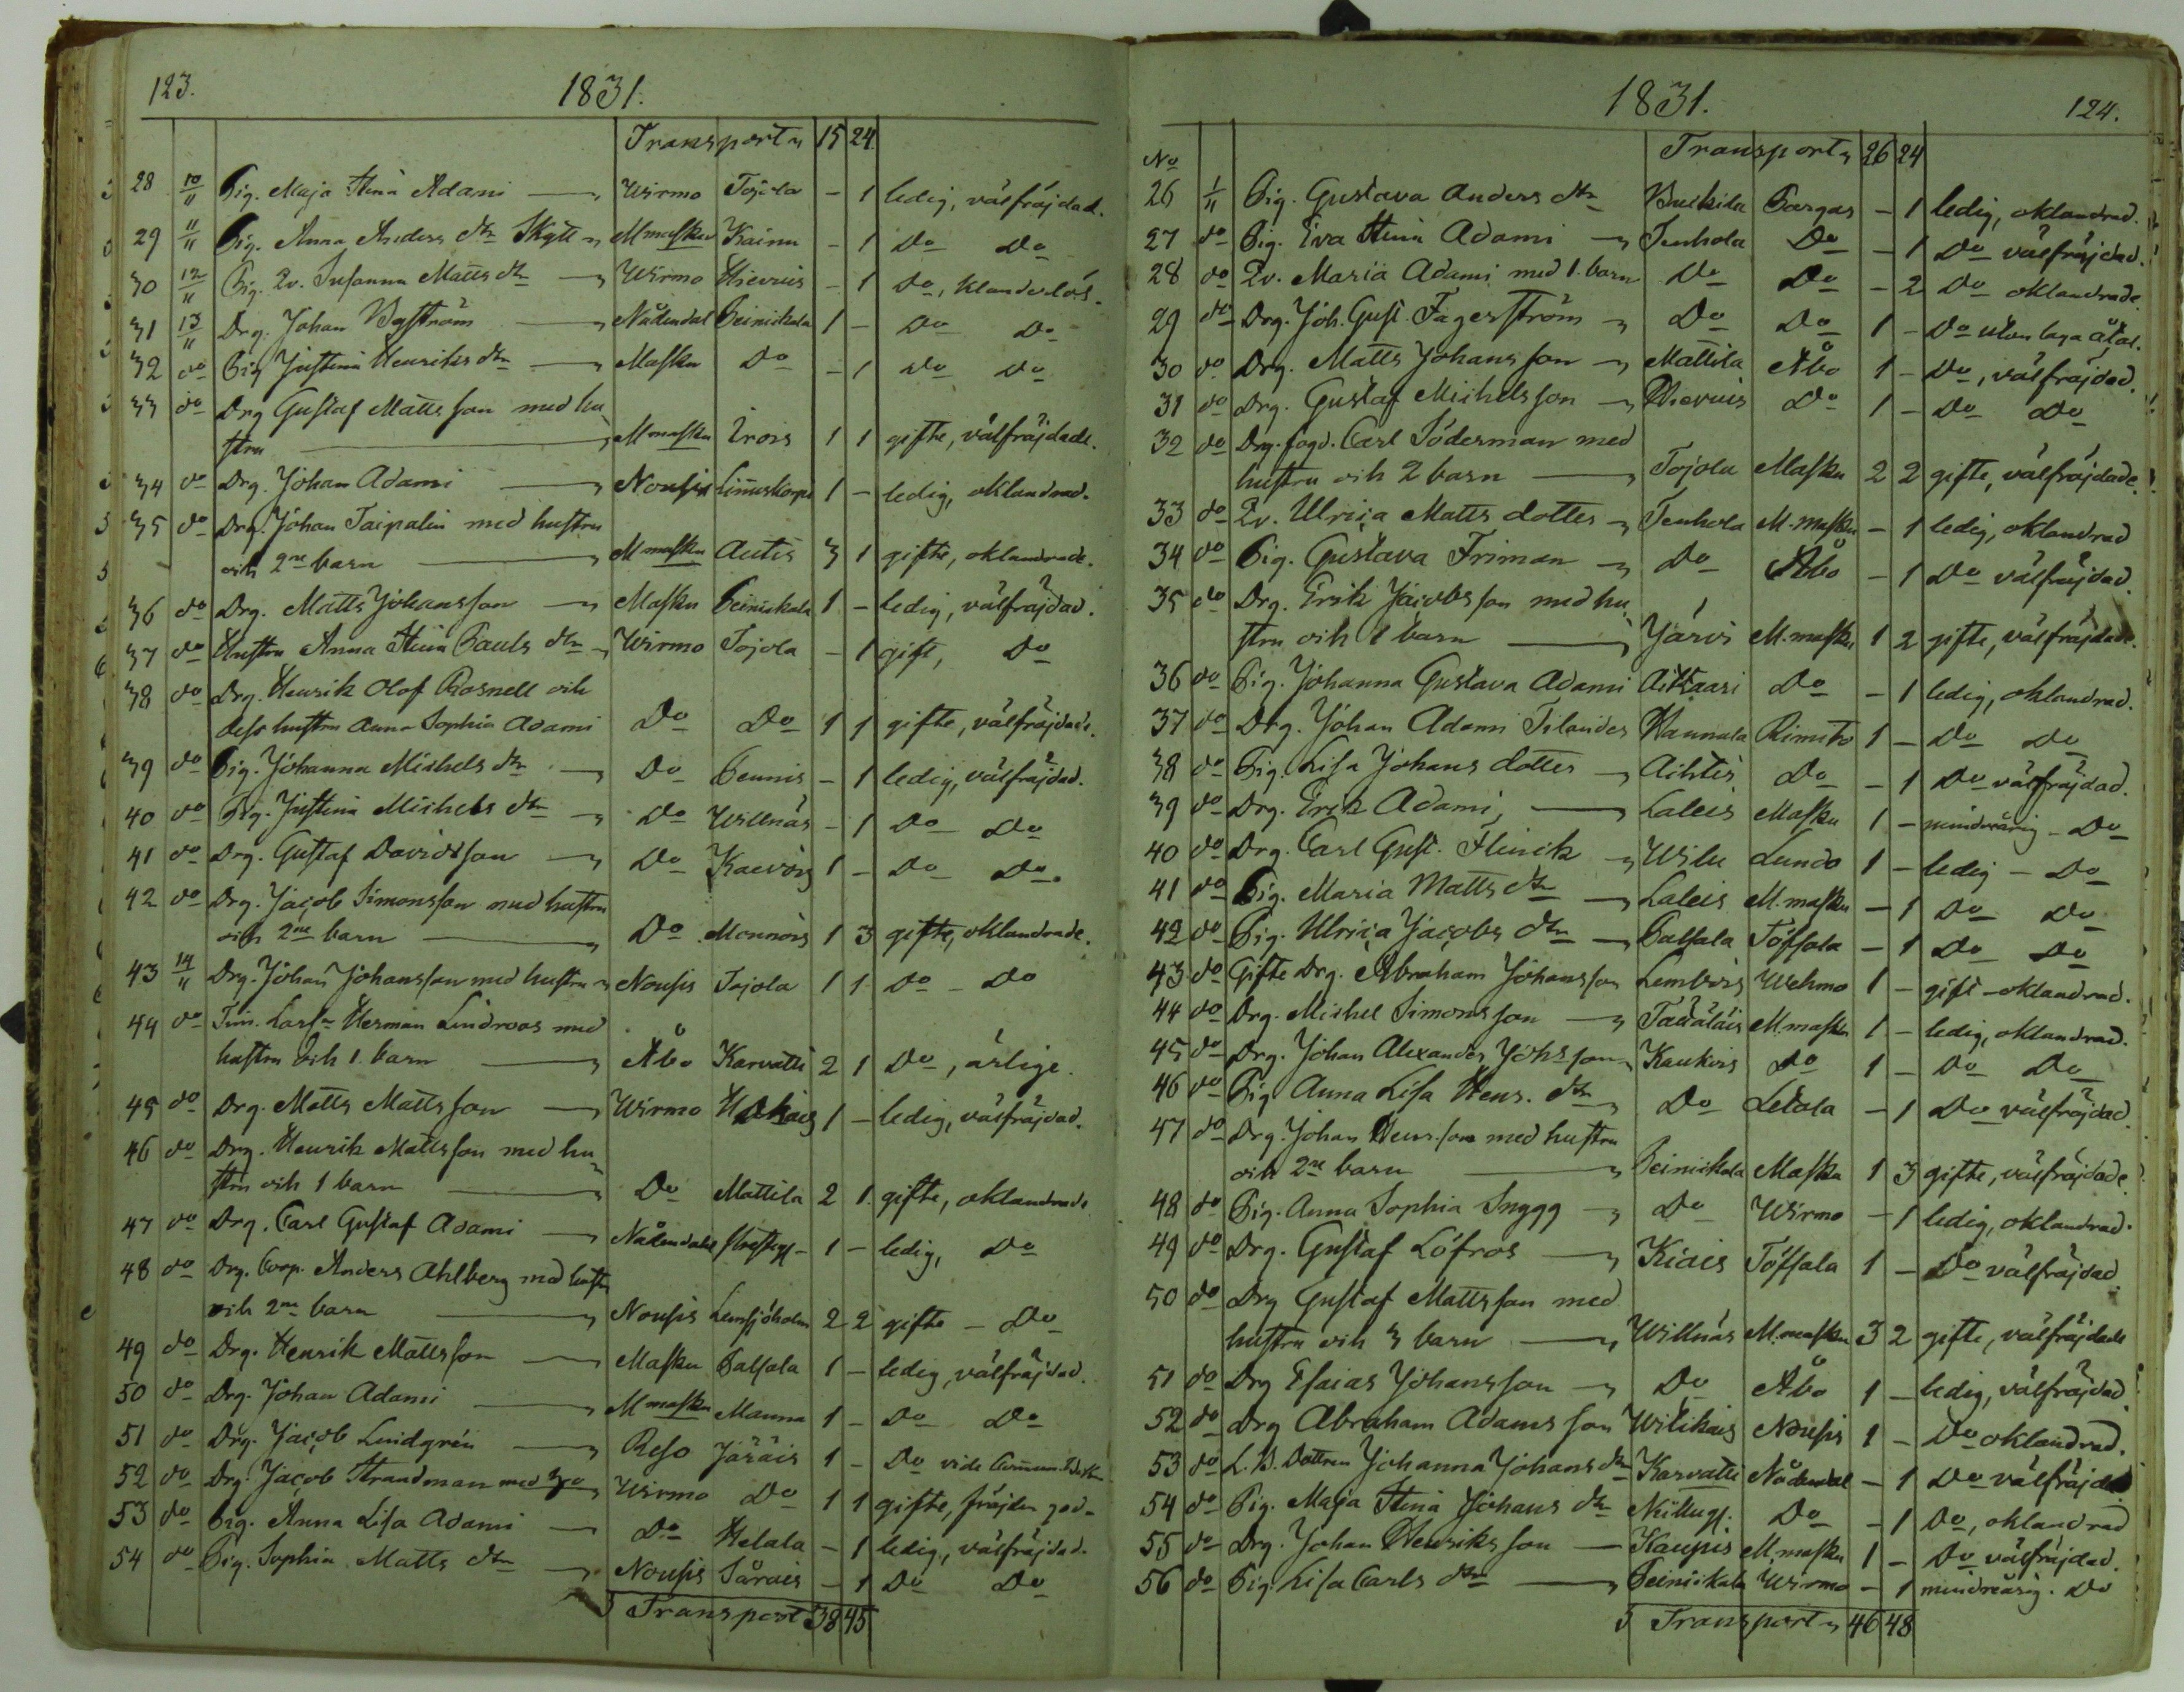 123.
1831.
Transport 15 24
28 10/11 Pig. Maja Stina Adami Wirmo Tojola - 1 ledig, välfräjdad.
29 11/11 Pig. Anna Anders dtr Skytt Mmasku Kainu - 1 Do Do
30 12/11 Pig. Qv. Susanna Matts dtr Wirmo Hievuis - 1 Do, klanderlös.
31 13/11 Drg. Johan Byström Nådendal Peiniskala 1 - Do Do
32 do Pig Justina Henriks dtr Masku Do - 1 Do Do
33 do Drg Gustaf Mattsson med hu
stru Mmasku Irois 1 1 gifte, välfräjdade.
34 do Drg. Johan Adami Nousis 1 - ledig, oklandrad.
35 do Drg. Johan Taipalin med hustru
och 2ne barn Mmasku Autis 3 1 gifte, oklandrade.
36 do Drg. Matts Johansson Masku Peiniskala 1 - ledig, välfräjdad.
37 do Hustru Anna Stina Pauls dtr Wirmo Tojola - 1 gift, Do
38 do Drg. Henrik Olof Rosnell och
dess hustru Anna Sophia Adami Do Do 1 1 gifte, välfräjdade.
39 do Pig. Johanna Michels dtr Do Pennis - 1 ledig, välfräjdad.
40 do Pig. Justina Michels dtr Do Willnäs - 1 Do Do
41 do Drg. Gustaf Davidsson Do Kaevois 1 - Do Do.
42 do Drg. Jacob Simonsson med hustru
och 2ne barn Do Monnois 1 3 gifte, oklandrade.
43 14/11 Drg. Johan Johansson med hustru Nousis Tojola 1 1 Do - Do
44 do Tim. Herman Lindroos med
hustru och 1. barn Åbo Karvatti 2 1 Do, ärlige.
45 do Drg. Matts Mattsson Wirmo 1 - ledig, välfräjdad.
46 do Drg. Henrik Mattsson med hu
stru och 1 barn Do Mattila 2 1. gifte, oklandrade
47 do Drg. Carl Gustaf Adami Nådendahl 1 - ledig, Do
48 do Drg. Corp. Anders Ahlberg med hustr
och 2ne barn Nousis Lemsjöholm 2 2 gifte - Do
49 do Drg. Henrik Mattsson Masku Palsala 1 - ledig, välfräjdad.
50 do Drg. Johan Adami Mmasku Manna 1 - Do Do
51 do Drg. Jacob Lindgrén Reso Järäis 1 - Do vide
52 do Drg. Jacob Strandman med Wirmo Do 1 1 gifte, fräjden god-
53 do Pig. Anna Lisa Adami Do Helala - 1 ledig, välfräjdad.
54 do Pig. Sophia Matts dtr Nousis Särais - 1 Do Do
Transport 38 45
1831.
124.
Transport 26 24
No
26 1/11 Pig. Gustava Anders dtr Pargas - 1 ledig, oklandrad.
27 do Pig. Eva Stina Adami Tenhola Do - 1 Do välfräjdad.
28 do Qv. Maria Adami med 1. barn Do Do - 2 Do oklandrade
29 do Drg. Joh. Gust. Fagerström Do Do 1 - Do utan laga åtal.
30 do Drg. Matts Johansson Mattila Åbo 1 - Do, välfräjdad.
31 do Drg. Gustaf Michelsson Hievuis Do 1 - Do Do
32 do Drg. fogd. Carl Söderman med
hustru och 2 barn Tojola Masku 2 2 gifte, välfräjdade.
33 do Qv. Ulrica Matts dotter Tenhola M.masku - 1 ledig, oklandrad
34 do Pig. Gustava Friman Do Åbo - 1 Do välfräjdad.
35 do Drg. Erik Jacobsson med hu
stru och 1 barn Järvi M.masku 1 2 gifte, välfräjdade.
36 do Pig. Johanna Gustava Adami Aittaari Do - 1 ledig, oklandrad.
37 do Drg. Johan Adami Tilander Hannula Rimito 1 - Do Do
38 do Pig. Lisa Johans dotter Aihtis Do - 1 Do välfräjdad.
39 do Drg. Erik Adami, Laleis Masku 1 - minderårig - Do
40 do Drg. Carl Gust. Flinck Wilu Lundo 1 - ledig - Do
41 do Pig. Maria Matts dtr Laleis M.masku - 1 Do Do
42 do Pig. Ulrica Jacobs dtr Palsala Töfsala - 1 Do Do
43 do Gifte Drg. Abraham Johansson Lembois Wehmo 1 - gift - oklandrad.
44 do Drg. Michel Simonsson M.masku 1 - ledig, oklandrad.
45 do Drg. Johan Alexander Johsson Kaukois Do 1 - Do Do
46 do Pig Anna Lisa Henr. dtr Do Letala - 1 Do välfräjdad.
47 do Drg. Johan Henr.son med hustru
och 2ne barn Peiniskala Masku 1 3 gifte, välfräjdade
48 do Pig. Anna Sophia Snygg Do Wirmo - 1 ledig, oklandrad.
49 do Drg. Gustaf Löfros Kiais Töfsala 1 - Do välfräjdad.
50 do Drg Gustaf Mattsson med
hustru och 3 barn Willnäs M.masku 3 2 gifte, välfräjdade
51 do Drg Esaias Johansson Do Åbo 1 - ledig, välfräjdad.
52 do Drg Abraham Adamsson Wilikais Nousis 1 - Do oklandrad.
53 do L.B. Dottren Johanna Johans dtr Karvatti Nådendal - 1 Do välfräjdad
54 do Pig. Maja Stina Johans dtr Do - 1 Do, oklandrad
55 do Drg. Johan Henriksson Kaupis M.masku 1 - Do välfräjdad.
56 do Pig. Lisa Carls dtr Peiniskala Wirmo - 1 minderårig. Do
Transport 46 48